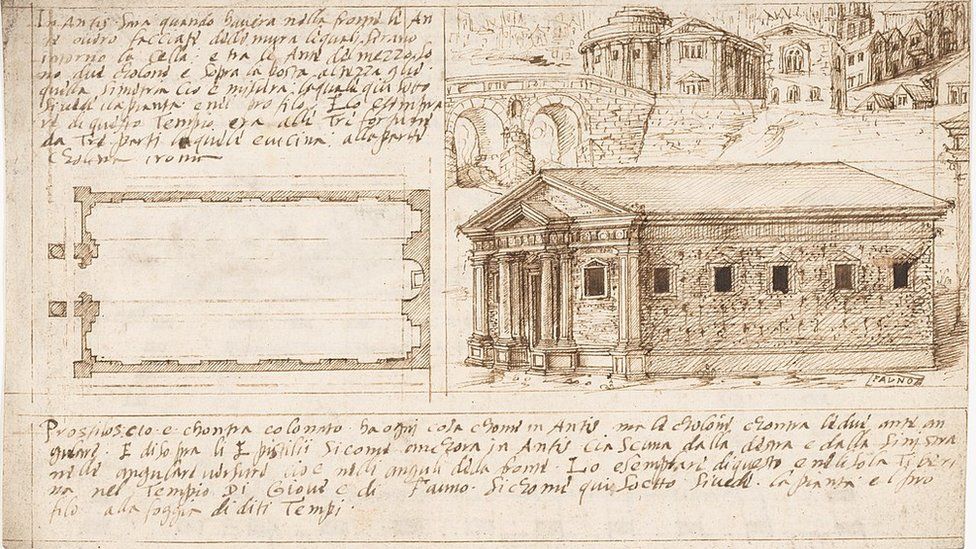 In Antis sara quando havera nella fronte li An
te overo facciate delle mura li quali serano
intorno la Cella. e tra le Ante del mezzo so
no due cholone e sopra la
quella simetria cio e misura la quale qui soto
si vede la pianta e nel profilo. Lo esempla
re di questo Tempio era alle Tre fortune
da Tre parti le quali e vicina alla parte
Cholina
FAUNO
Prostilos e lo e chontra colonato ha ogni cosa chome in Antis ma le cholone chontra le due ante an
gulare. E di sopra li Epistilii sicome anchora in Antis ciascuna dalla destra e dalla sinistra
nelle angulare versure cio e nelli anguli della fronte. Lo esemplare di questo e nel isola Tiberi
na nel Tempio Di Giove e di Fauno. sichome qui socto si vede la pianta e l pro
filo alla foggia di diti Tempi.